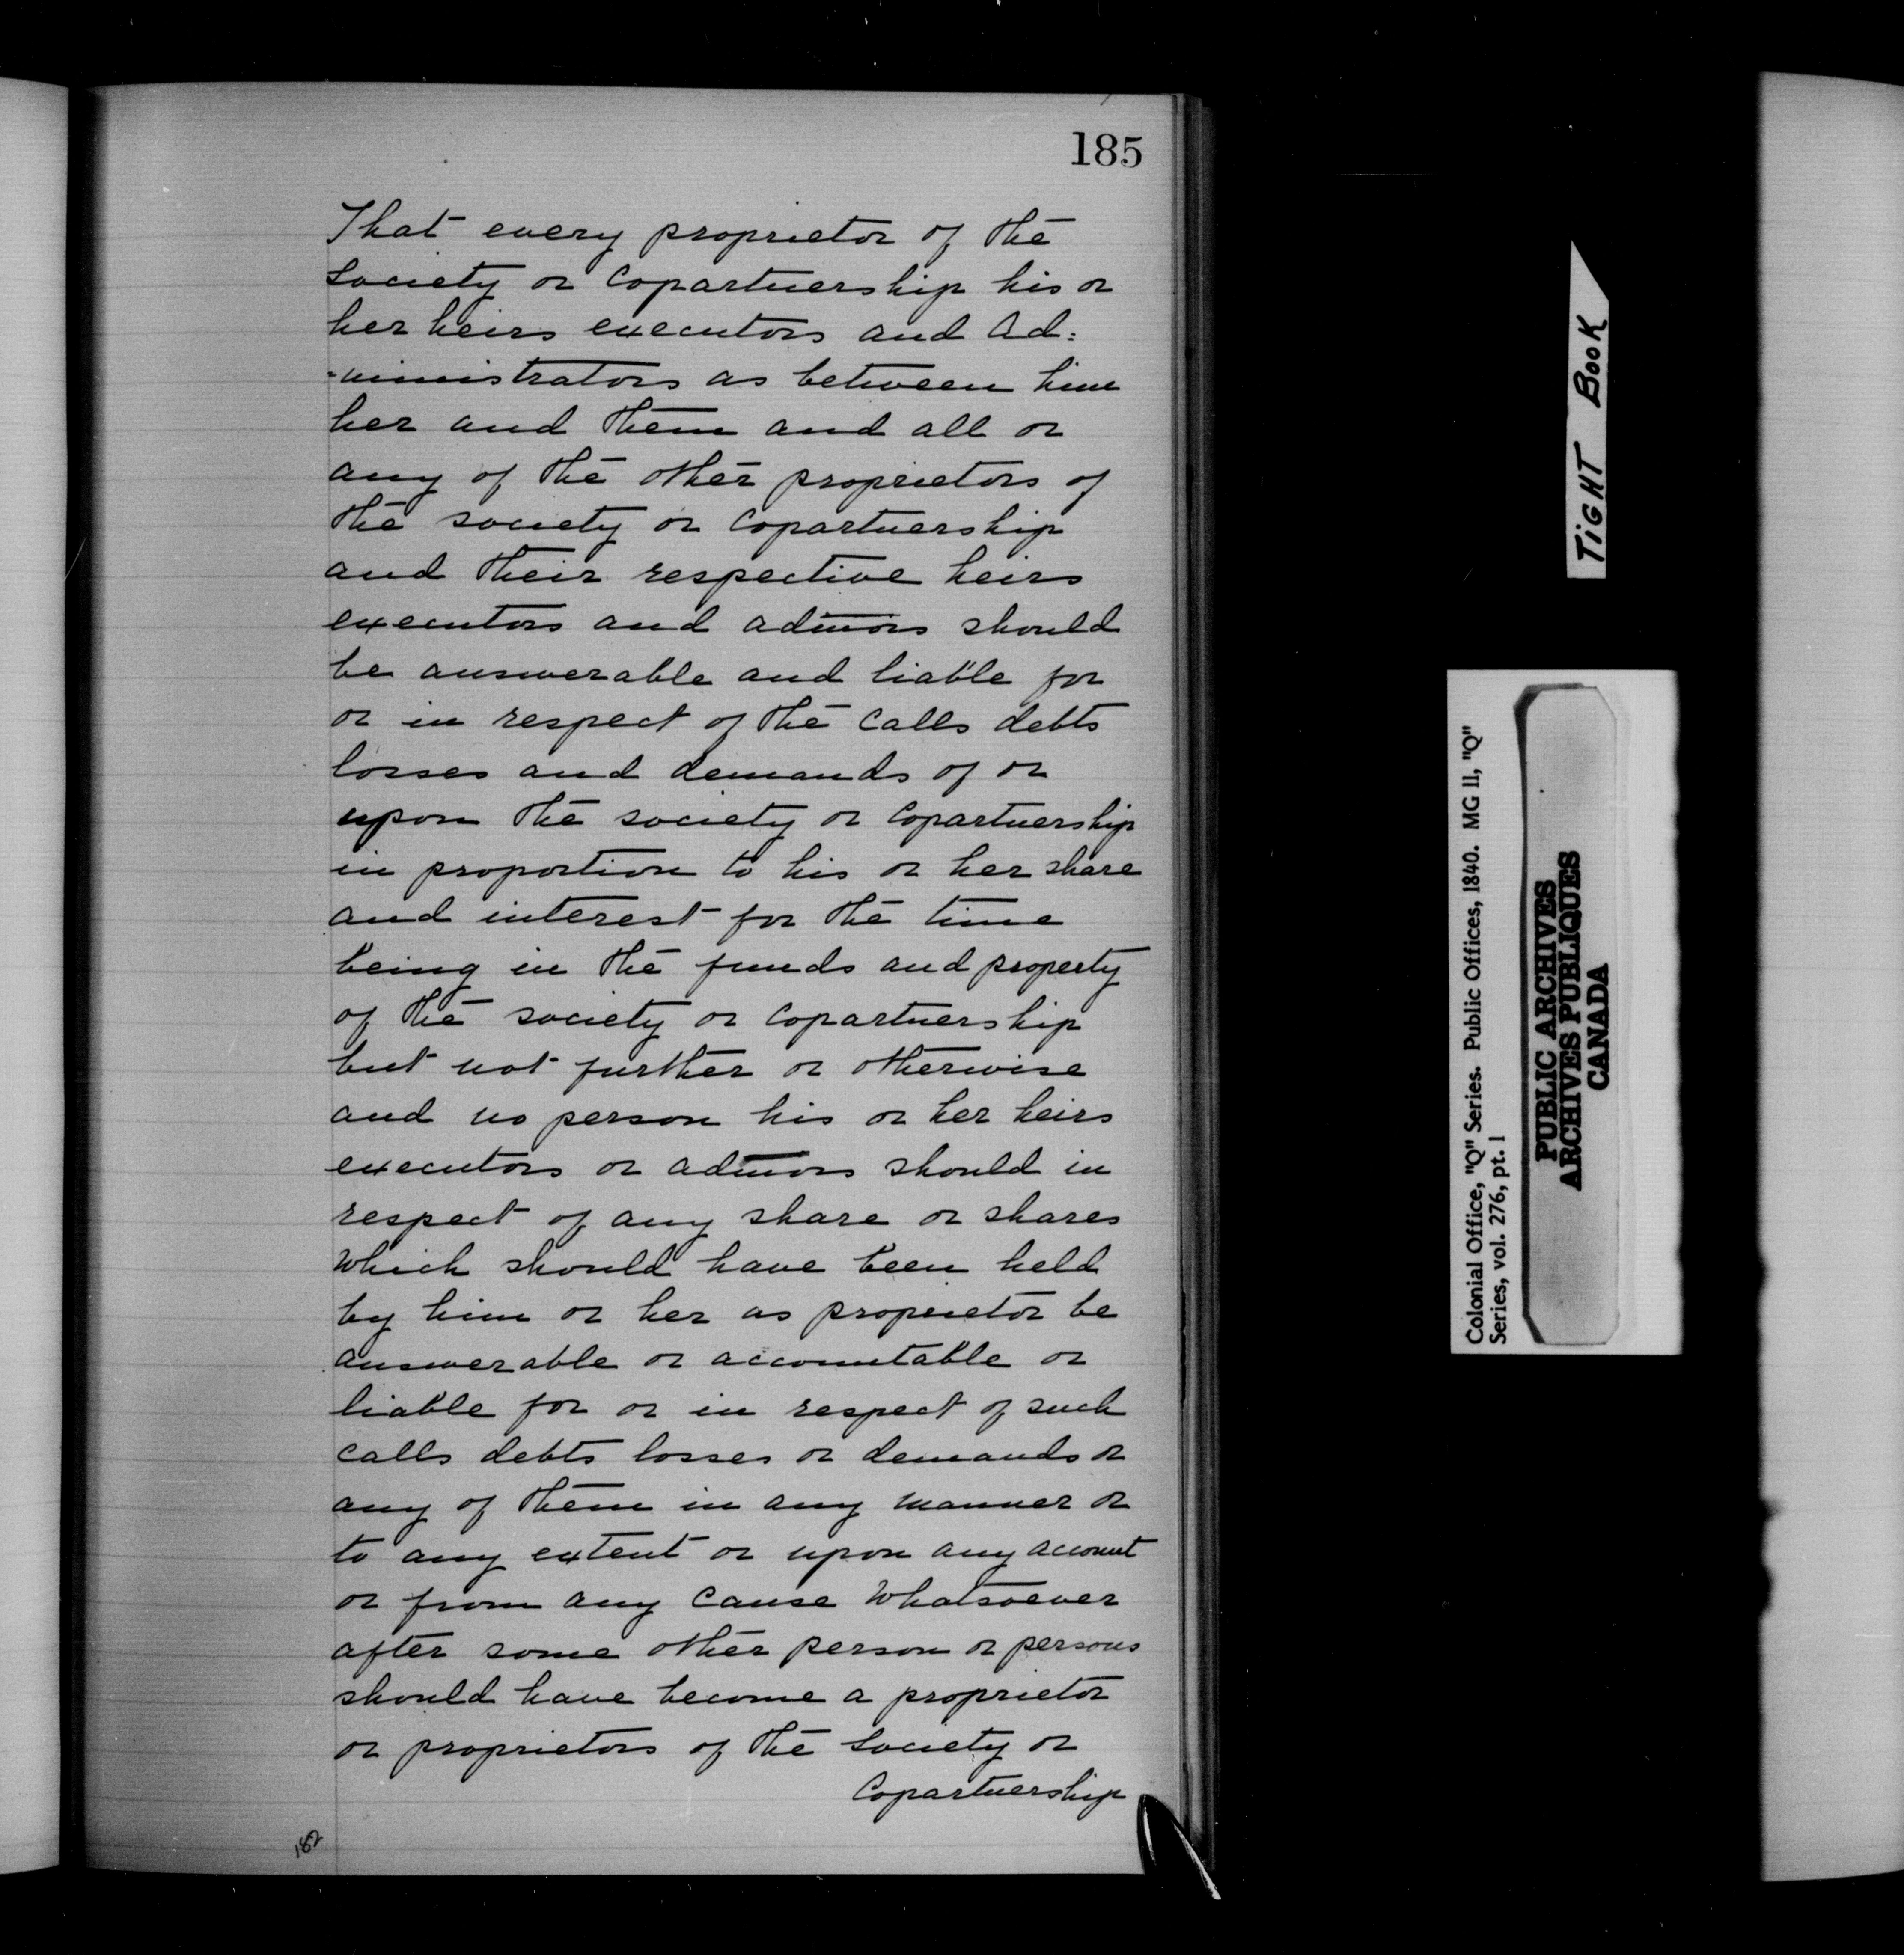 185
That every proprietor of the
Society or Copartnership his or
her heirs executors and Ad=
=ministrators as between him
her and them and all or
any of the other proprietors of
the society or Copartnership
and their respective heirs
executors and admors should
be answerable and liable for
or in respect of the Calls debts
losses and demands of or
upon the society or Copartnership
in proportion to his or her share
and interest for the time
being in the funds and property
of the society or Copartnership
but not further or otherwise
and no person his or her heirs
executors or admors should in
respect of any share or shares
which should have been held
by him or her as proprietor be
answerable or accountable or
liable for or in respect of such
Calls debts losses or demands or
any of them in any manner or
to any extent or upon any account
or from any Cause whatsoever
after some other person or persons
should have become a proprietor
or proprietors of the Society or
Copartnership
182
TIGHT BOOK
Colonial Office, "Q" Series. Public Offices, 1840. MG 11, "Q"
Series, vol. 276, pt. 1
PUBLIC ARCHIVES
ARCHIVES PUBLIQUES
CANADA